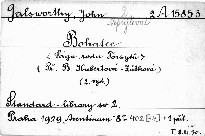 Galsworthy John 2 A 15853
Bohatec
(Sága rodu Forsytů)
(Př. B. Hubertová-Zátková)
(2. vyd.)
Standard-library sv 2.
Praha 1929, Aventinum 8° 402